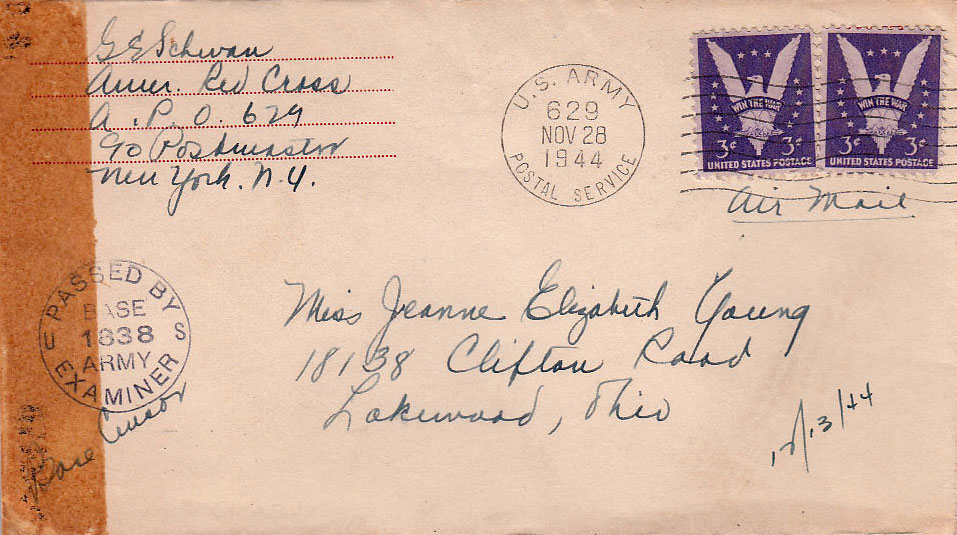 G E Schwan
Amer. Red Cross
A.P.O. 629
℅ Postmaster
New York. N.Y.
U.S. ARMY
629
NOV 28
1944
POSTAL SERVICE
WIN THE WAR
3¢ 3¢
UNITED STATES POSTAGE
WIN THE WAR
3¢ 3¢
UNITED STATES POSTAGE
Air Mail
PASSED BY
BASE
1838
U S
ARMY
EXAMINER
Base Censor
Miss Jeanne Elizabeth Young
18138 Clifton Road
Lakewood, Ohio
12/13/44